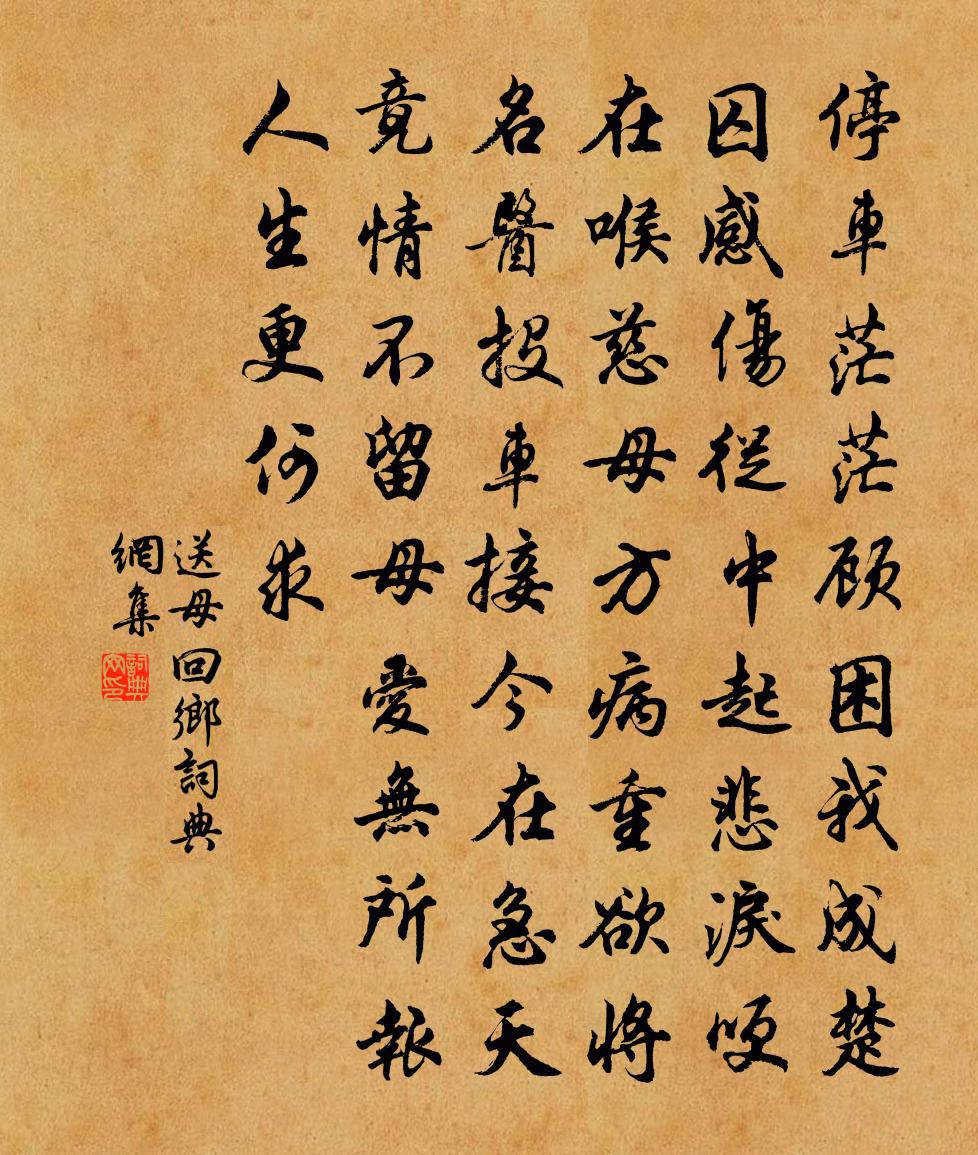 停車茫茫顾困我成楚
囚感傷從中起悲淚哽
在喉慈母方病重欲將
名醫投車接今在急天
竟情不留母愛無所報
人生更何求
送母回鄉詞典
網集
詞典
网印